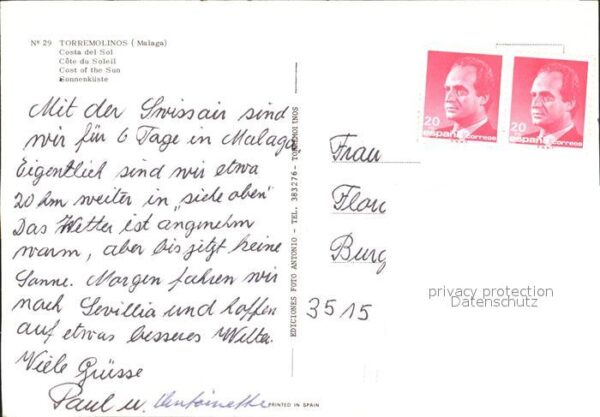 Nº 29 TORREMOLINOS (Malaga)
Costa del Sol
Côte du Soleil
Cost of the Sun
Sonnenküste
Mit der Swissair sind
wir für 6 Tage in Malaga
Eigentlich sind wir etwa
20 km weiter in "siehe oben"
Das Wetter ist angenehm
warm, aber bis jetzt keine
Sonne. Morgen fahren wir
nach Sevillia und hoffen
auf etwas besseres Wetter.
Viele Grüsse
Paul u. Antoinette
EDICIONES FOTO ANTONIO - TEL. 383276 - TORREMOLINOS
PRINTED IN SPAIN
20
españa correos
20
españa correos
Frau
Flor
Burg
3515
privacy protection
Datenschutz